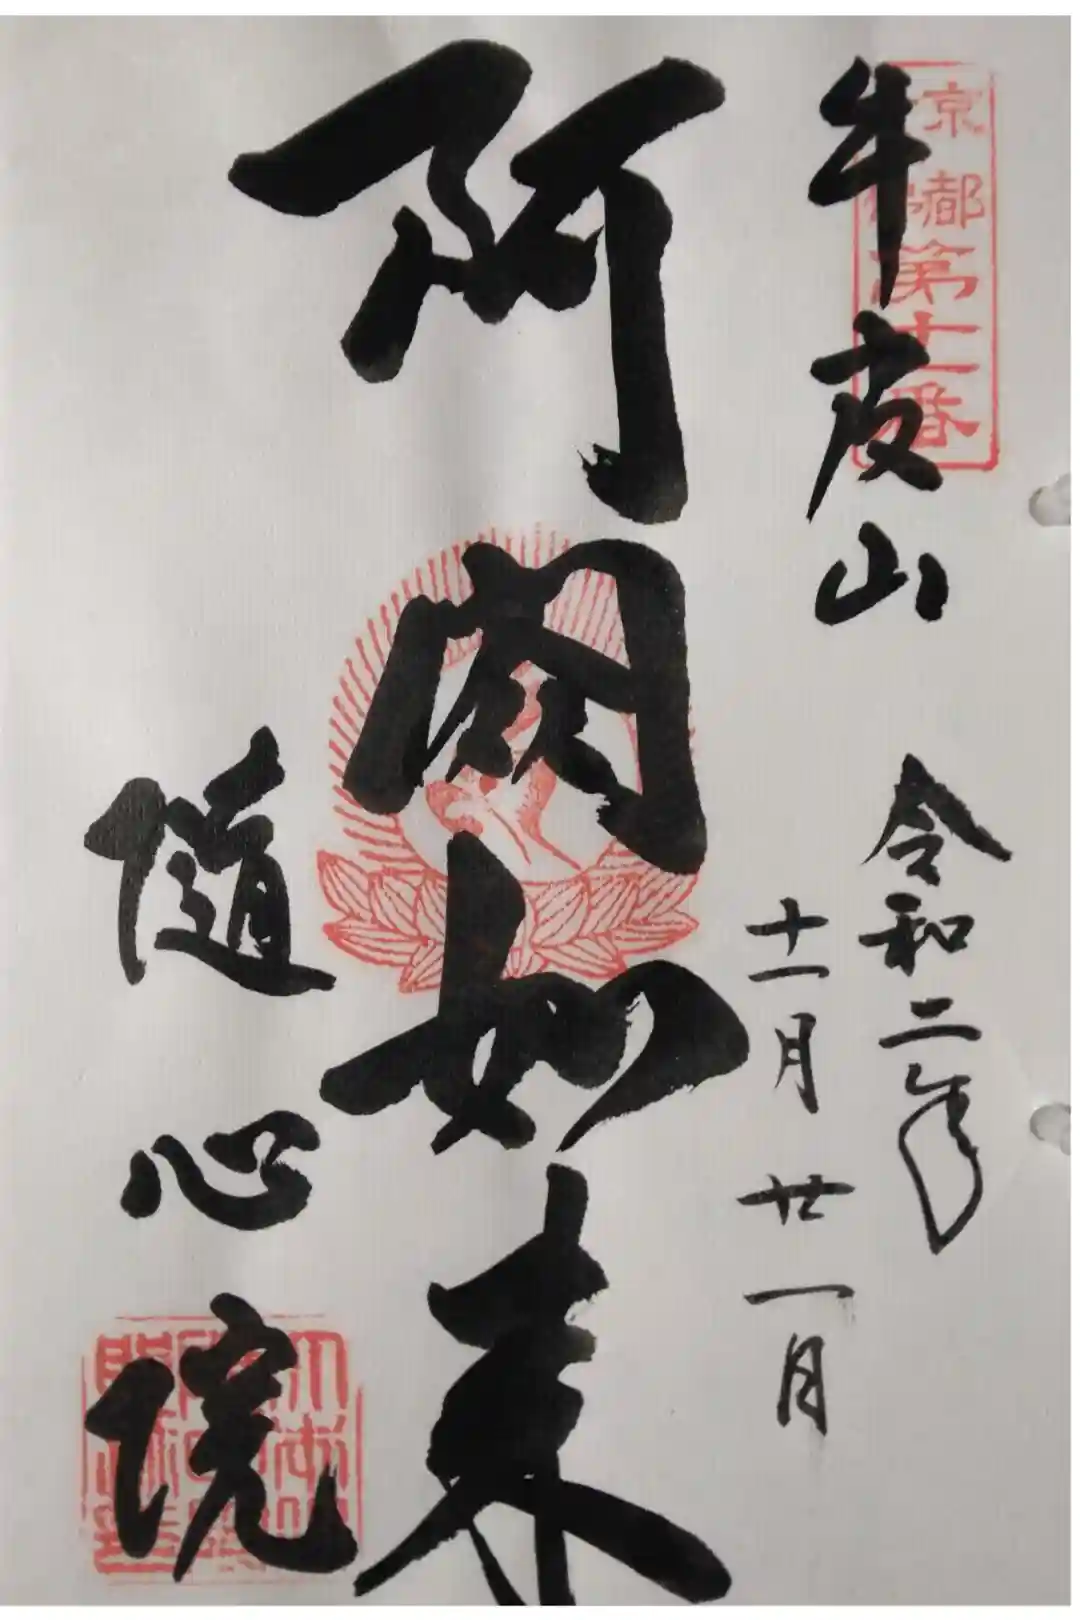 京都
第十一番
牛皮山
令和二年
十一月廿一日
阿閦如来
隨心院